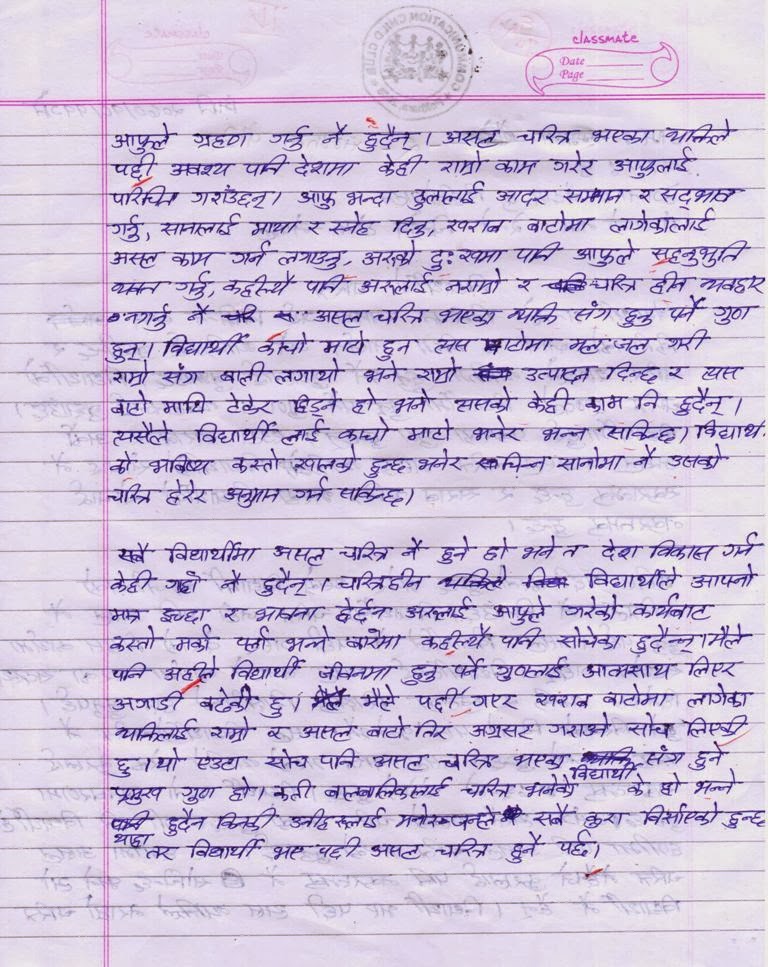 classmate
Date
Page
आफुले ग्रहण गर्नु नै हुदैन् । असल चरित्र भएका व्यक्तिले
पछी अवश्य पानि देशमा केही रामो काम गरेर आफुलाई
परिचित गराँउछन् । आफु भन्दा ठुलालाई आदर सम्मान र सद्भाव
गर्नु, सानालाई माया र स्नेह दिनु, खराब बाटोमा लागेकालाई
असल काम गर्न लगाउनु, अरुको दुःखमा पानि आफुले सहनुभुति
व्यक्त गर्नु, कहील्यै पानि अरुलाई नरामो र चरित्र हीन व्यवहार
नगर्नु नै असल चरित्र भएका व्यक्ति संग हुनु पर्ने गुण
हुन् । विद्यार्थी काँचो माटो हुन त्यस माटोमा मल जल गरी
रामो संग बाली लगायो भने रामो उत्पादन दिन्छ र त्यस
माटो माथि टेकेर हिड्ने हो भने त्यसको केही काम नि हुदैन् ।
त्यसैले विद्यार्थी लाई काचो माटो भनेर भन्न सकिन्छ । विद्यार्थी
को भविष्य कस्तो खालको हुन्छ भनेर सानोमा नै उसको
चरित्र हेरेर अनुमान गर्न सकिन्छ ।
सबै विद्यार्थीमा असल चरित्र नै हुने हो भने त देश विकास गर्न
केही गाह्रो नै हुदैन् । चरित्रहीन विद्यार्थीले आफ्नो
मात्र इच्छा र भावना हेर्दछन अरुलाई आफुले गरेको कार्यबाट
कस्तो मर्का पर्छ भन्ने बारेमा कहील्यै पानि सोचेका हुदैनन् । मैले
पानि अहीले विद्यार्थी जीवनमा हुनु पर्ने गुणलाई आत्मसाथ लिएर
अगाडी बढेकी छु । मैले पछी गएर खराब बाटोमा लागेका
व्यक्तिलाई रामो र असल बाटो तिर अग्रसर गराउने सोच लिएकी
छु । यो एउटा सोच पानि असल चरित्र भएका विद्यार्थी संग हुने
प्रमुख गुण हो । कती बालबालिकालाई चरित्र भनेको के हो भन्ने
थाहा हुदैन किनकी उनीहरुलाई मनोरन्जनले सबै कुरा विर्साएको हुन्छ
तर विद्यार्थी भए पछी असल चरित्र हुनै पर्छ ।